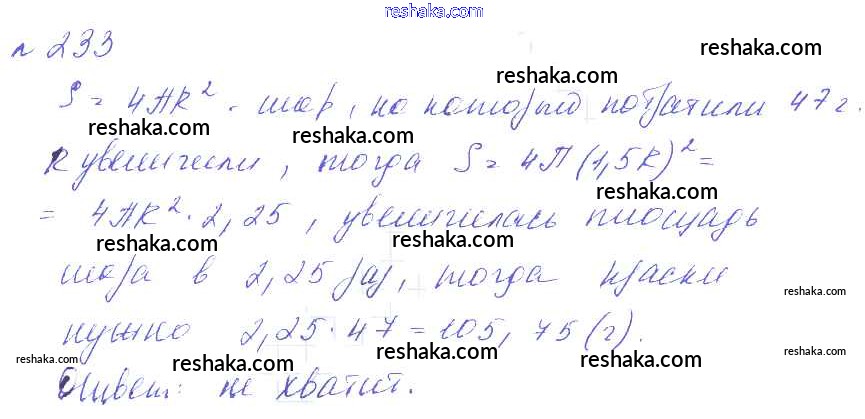 reshaka.com
n 233
reshaka.com
reshaka.com
S = 4πR² - шар, на который потратили 47 г.
reshaka.com
reshaka.com
reshaka.com
R увеличили, тогда S = 4π(1,5R)² =
= 4πR² · 2,25, увеличилась площадь
reshaka.com
reshaka.com
reshaka.com
шара в 2,25 раз, тогда краски
reshaka.com
нужно 2,25 · 47 = 105,75 (г).
reshaka.com
reshaka.com
reshaka.com
reshaka.com
Ответ: не хватит.
reshaka.com
reshaka.com